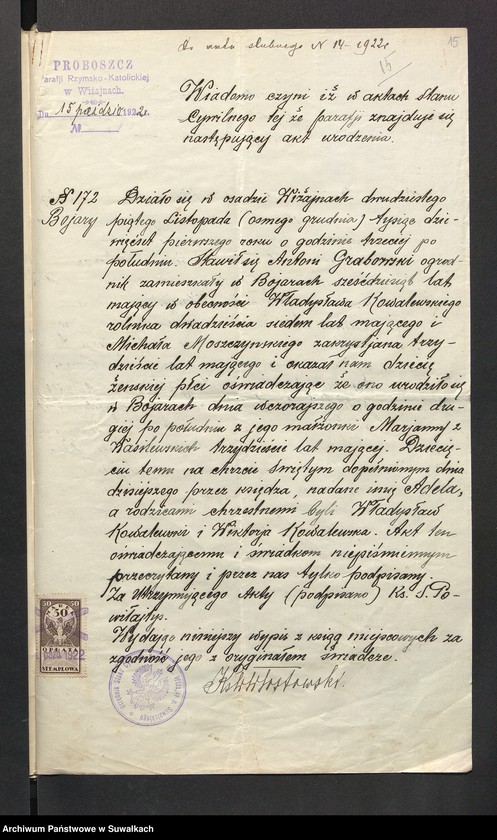 do aktu ślubnego N 14 - 1922 r
15
15
PROBOSZCZ
Parafji Rzymsko-Katolickiej
w Wiżajnach
Dn. 15 paźdz 1922 r.
№
Wiadomo czyni iż w aktach stanu
Cywilnego tej że parafji znajduje się
następujący akt urodzenia.
N 172
Bojary
Działo się w osadzie Wiżajnach dwudziestego
piątego Listopada (ósmego grudnia) tysiąc dzie-
więćset pierwszego roku o godzinie trzeciej po
południu. Stawił się Antoni Grabowski ogrod-
nik zamieszkały w Bojarach sześćdziesiąt lat
mający w obecności Władysława Kowalewskiego
rolnika dwadzieścia siedem lat mającego i
Michała Moszczyńskiego zakrystjana trzy-
dzieście lat mającego i okazał nam dziecię
żeńskiej płci oświadczając że ono urodziło się
w Bojarach dnia wczorajszego o godzinie dru-
giej po południu z jego małżonki Marjanny z
Wasilewskich trzydzieście lat mającej. Dziecię-
ciu temu na chrzcie świętym dopełnionym dnia
dzisiejszego przez księdza, nadane imię Adela,
a rodzicami chrzestnemi byli Władysław
Kowalewski i Wiktorja Kowalewska. Akt ten
oświadczającemu i świadkom niepiśmiennym
przeczytany i przez nas tylko podpisany.
Za Utrzymującego Akty (podpisano) Ks. S. Po-
wiłajtys.
Wydając niniejszy wypis z ksiąg miejscowych za
zgodność jego z oryginałem świadczę.
50 50
50
OPŁATA
STEMPLOWA
1922
Archiwum Państwowe w Suwałkach